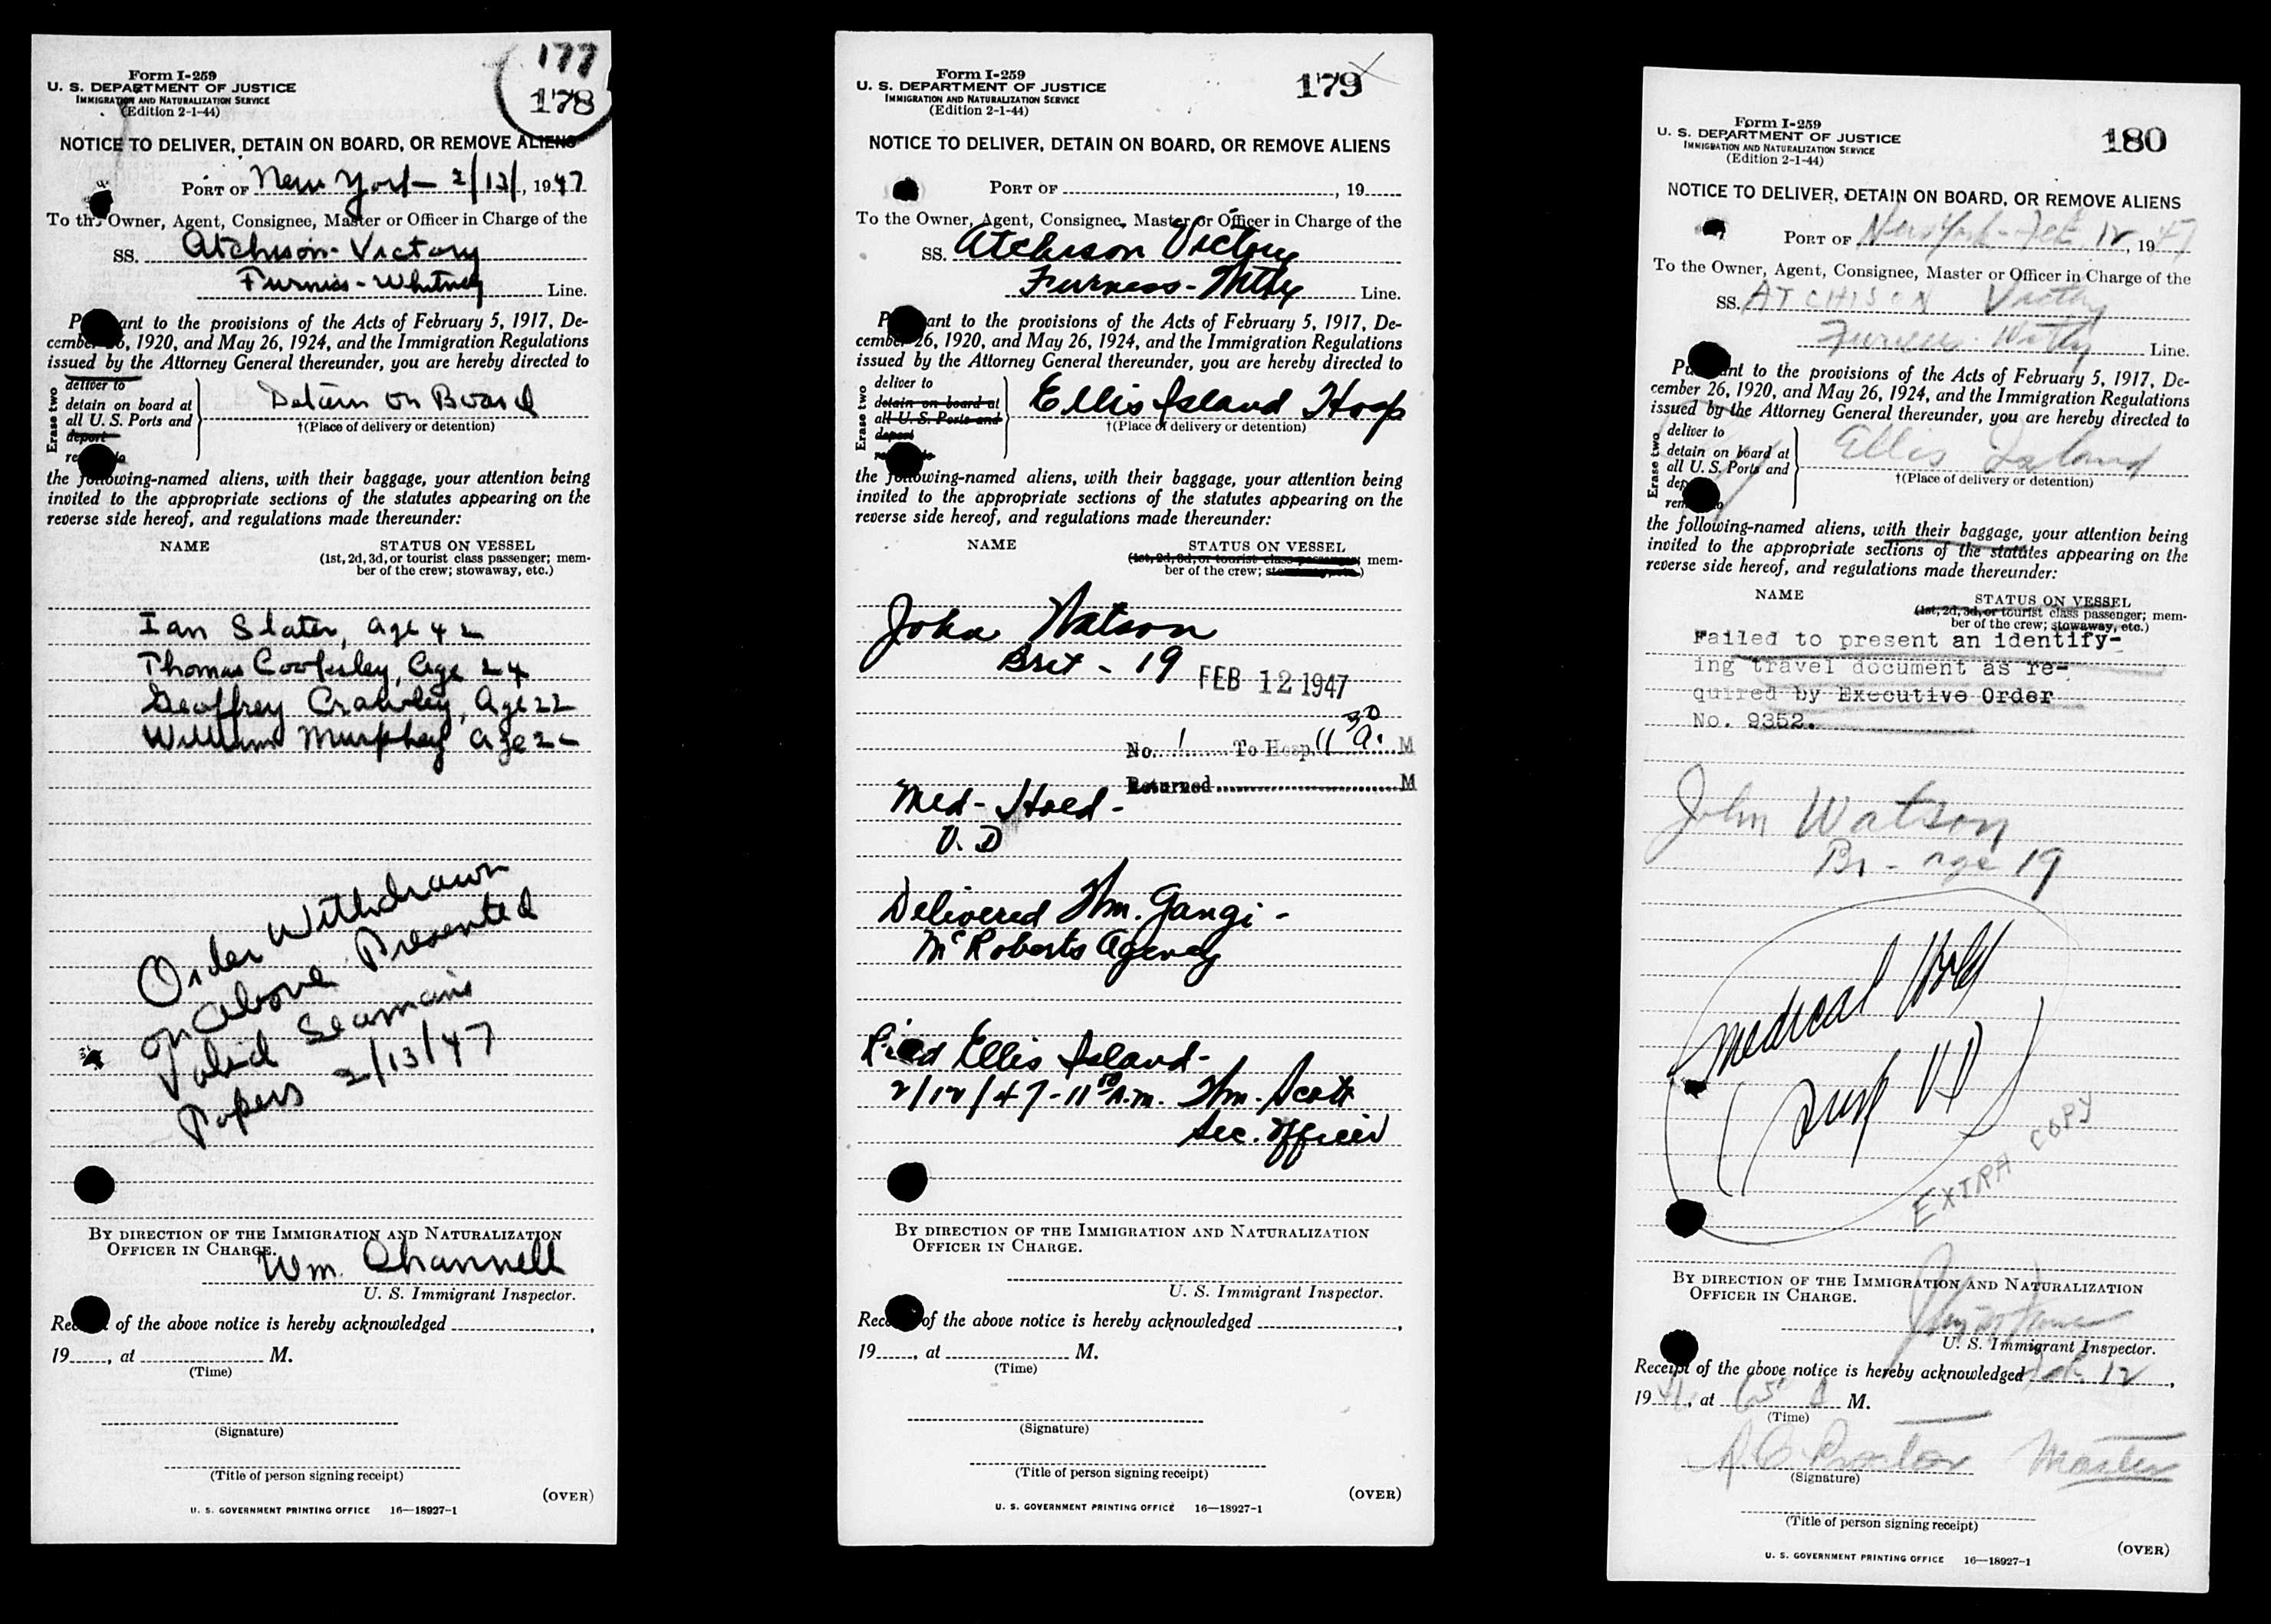 177
178
Form I-259
U. S. DEPARTMENT OF JUSTICE
IMMIGRATION AND NATURALIZATION SERVICE
(Edition 2-1-44)
NOTICE TO DELIVER, DETAIN ON BOARD, OR REMOVE ALIENS
PORT OF New York 2/12/, 1947
To the Owner, Agent, Consignee, Master or Officer in Charge of the
SS. Atchison-Victory
Furniss-Whitney Line.
P ant to the provisions of the Acts of February 5, 1917, De-
cember 26, 1920, and May 26, 1924, and the Immigration Regulations
issued by the Attorney General thereunder, you are hereby directed to
Erase two
deliver to
detain on board at
all U. S. Ports and
deport
re to
Detain on Board
†(Place of delivery or detention)
the following-named aliens, with their baggage, your attention being
invited to the appropriate sections of the statutes appearing on the
reverse side hereof, and regulations made thereunder:
NAME STATUS ON VESSEL
(1st, 2d, 3d, or tourist class passenger; mem-
ber of the crew; stowaway, etc.)
Ian Slater, age 42
Thomas Cooksley, Age 24
Geoffrey Crawley, Age 22
William Murphey age
Order Withdrawn
on above Presented
Valid Seamans
Papers 2/13/47
BY DIRECTION OF THE IMMIGRATION AND NATURALIZATION
OFFICER IN CHARGE.
Wm. Channell
U. S. Immigrant Inspector.
Rec of the above notice is hereby acknowledged ,
19 , at M.
(Time)
(Signature)
(Title of person signing receipt)
(OVER)
U. S. GOVERNMENT PRINTING OFFICE 16—18927-1
179
Form I-259
U. S. DEPARTMENT OF JUSTICE
IMMIGRATION AND NATURALIZATION SERVICE
(Edition 2-1-44)
NOTICE TO DELIVER, DETAIN ON BOARD, OR REMOVE ALIENS
PORT OF , 19
To the Owner, Agent, Consignee, Master or Officer in Charge of the
SS. Atchison Victory
Furness-Withy Line.
P ant to the provisions of the Acts of February 5, 1917, De-
cember 26, 1920, and May 26, 1924, and the Immigration Regulations
issued by the Attorney General thereunder, you are hereby directed to
Erase two
deliver to
detain on board at
all U. S. Ports and
deport
Ellis Island Hosp
†(Place of delivery or detention)
the following-named aliens, with their baggage, your attention being
invited to the appropriate sections of the statutes appearing on the
reverse side hereof, and regulations made thereunder:
NAME STATUS ON VESSEL
(1st, 2d, 3d, or tourist class passenger; mem-
ber of the crew; stowaway, etc.)
John Watson
Brit - 19 FEB 12 1947
No. 1 To Hosp. 11 30 a. M
Returned M
Med-Hold-
V. D
Delivered Wm. Gangi -
McRoberts Agency
Ellis Island-
2/12/47-11 A.m. Wm. Scott
Sec. Officer
BY DIRECTION OF THE IMMIGRATION AND NATURALIZATION
OFFICER IN CHARGE.
U. S. Immigrant Inspector.
Rec of the above notice is hereby acknowledged ,
19 , at M.
(Time)
(Signature)
(Title of person signing receipt)
(OVER)
U. S. GOVERNMENT PRINTING OFFICE 16—18927-1
180
Form I-259
U. S. DEPARTMENT OF JUSTICE
IMMIGRATION AND NATURALIZATION SERVICE
(Edition 2-1-44)
NOTICE TO DELIVER, DETAIN ON BOARD, OR REMOVE ALIENS
PORT OF New York - Feb 12, 1947
To the Owner, Agent, Consignee, Master or Officer in Charge of the
SS. ATCHISON Victory
Furness-Withy Line.
Pu nt to the provisions of the Acts of February 5, 1917, De-
cember 26, 1920, and May 26, 1924, and the Immigration Regulations
issued by the Attorney General thereunder, you are hereby directed to
Erase two
deliver to
detain on board at
all U. S. Ports and
dep
rem to
Ellis Island
†(Place of delivery or detention)
the following-named aliens, with their baggage, your attention being
invited to the appropriate sections of the statutes appearing on the
reverse side hereof, and regulations made thereunder:
NAME STATUS ON VESSEL
(1st, 2d, 3d, or tourist class passenger; mem-
ber of the crew; stowaway, etc.)
Failed to present an identify-
ing travel document as re-
quired by Executive Order
No. 9352.
John Watson
Br - age 19
Medical Hold
(Susp VD)
EXTRA COPY
BY DIRECTION OF THE IMMIGRATION AND NATURALIZATION
OFFICER IN CHARGE.
U. S. Immigrant Inspector.
Receipt of the above notice is hereby acknowledged Feb. 12,
19 , at A M.
(Time)
A.C. Proctor Master
(Signature)
(Title of person signing receipt)
(OVER)
U. S. GOVERNMENT PRINTING OFFICE 16—18927-1